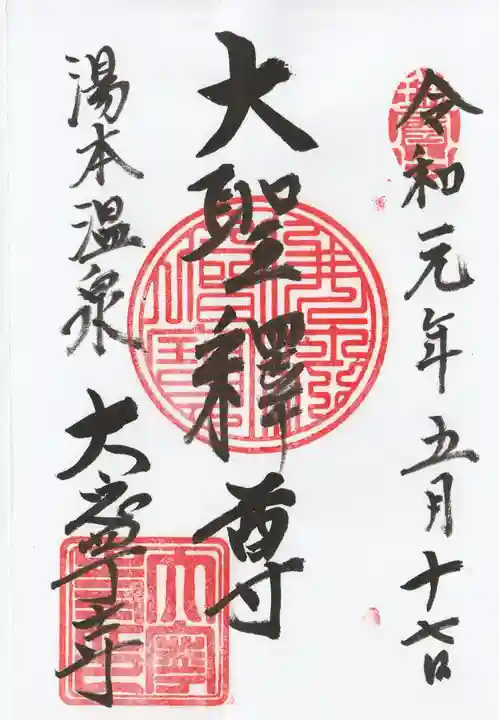 令和元年五月十七日
大聖釋尊
湯本温泉
大寧寺